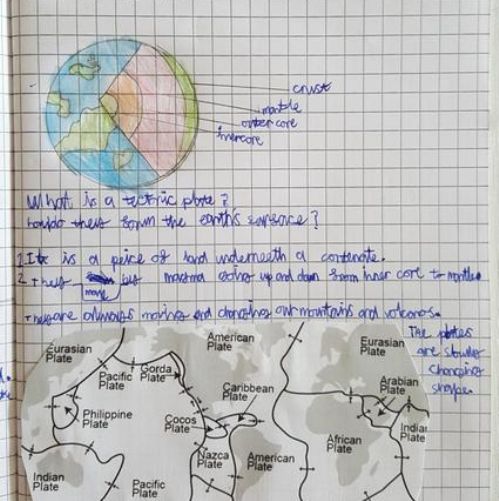 crust
mantle
outer core
inner core
What is a tectonic plate?
how do they form the earth's surface?
1. It is a peice of land underneeth a contenate.
2. They move by magma going up and down from inner core to mantle.
They are allways moving and changing our mountains and volcanos.
The plates
are slowly
changing
shape.
Eurasian
Plate
Pacific
Plate
Gorda
Plate
American
Plate
Eurasian
Plate
Caribbean
Plate
Arabian
Plate
Philippine
Plate
Cocos
Plate
Nazca
Plate
American
Plate
African
Plate
Indian
Plate
Indian
Plate
Pacific
Plate